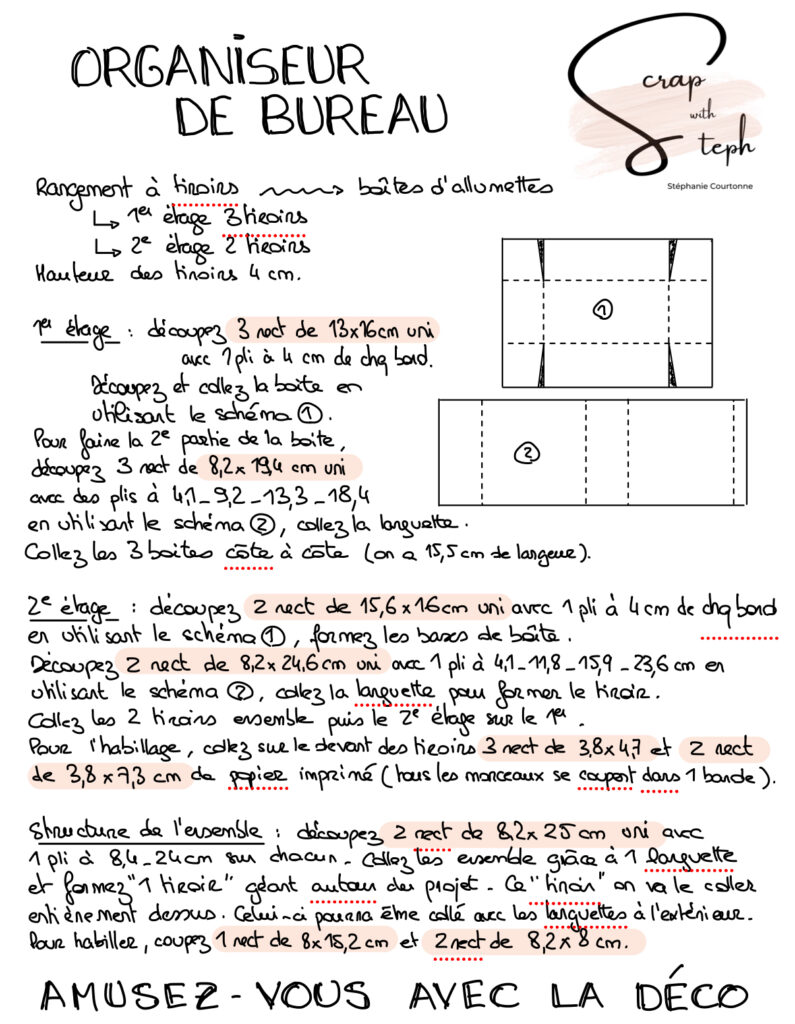 ORGANISEUR
DE BUREAU
Scrap
with
Steph
Stéphanie Courtonne
Rangement à tiroirs → boîtes d'allumettes
↳ 1er étage 3 tiroirs
↳ 2e étage 2 tiroirs
Hauteur des tiroirs 4 cm.
1er étage : découpez 3 rect de 13x16cm uni
avec 1 pli à 4 cm de chq bord.
Découpez et collez la boîte en
utilisant le schéma ①.
Pour faire la 2e partie de la boite,
découpez 3 rect de 8,2x19,4 cm uni
avec des plis à 4,1_9,2_13,3_18,4
en utilisant le schéma ②, collez la languette.
Collez les 3 boites côte à côte (on a 15,5 cm de largeur).
①
②
2e étage : découpez 2 rect de 15,6x16cm uni avec 1 pli à 4cm de chq bord
en utilisant le schéma ①, formez les bases de boîte.
Découpez 2 rect de 8,2x24,6cm uni avec 1 pli à 4,1_11,8_15,9_23,6 cm en
utilisant le schéma ②, collez la languette pour former le tiroir.
Collez les 2 tiroirs ensemble puis le 2e étage sur le 1er.
Pour l'habillage, collez sur le devant des tiroirs 3 rect de 3,8x4,7 et 2 rect
de 3,8x7,3 cm de papier imprimé (tous les morceaux se coupent dans 1 bande).
Structure de l'ensemble : découpez 2 rect de 8,2x25cm uni avec
1 pli à 8,4_24cm sur chacun_ Collez les ensemble grâce à 1 languette
et formez "1 tiroir" géant autour du projet_ Ce "tiroir" on va le coller
entièrement dessus. Celui-ci pourra être collé avec les languettes à l'extérieur.
Pour habiller, coupez 1 rect de 8x15,2 cm et 2 rect de 8,2x8 cm.
AMUSEZ-VOUS AVEC LA DÉCO